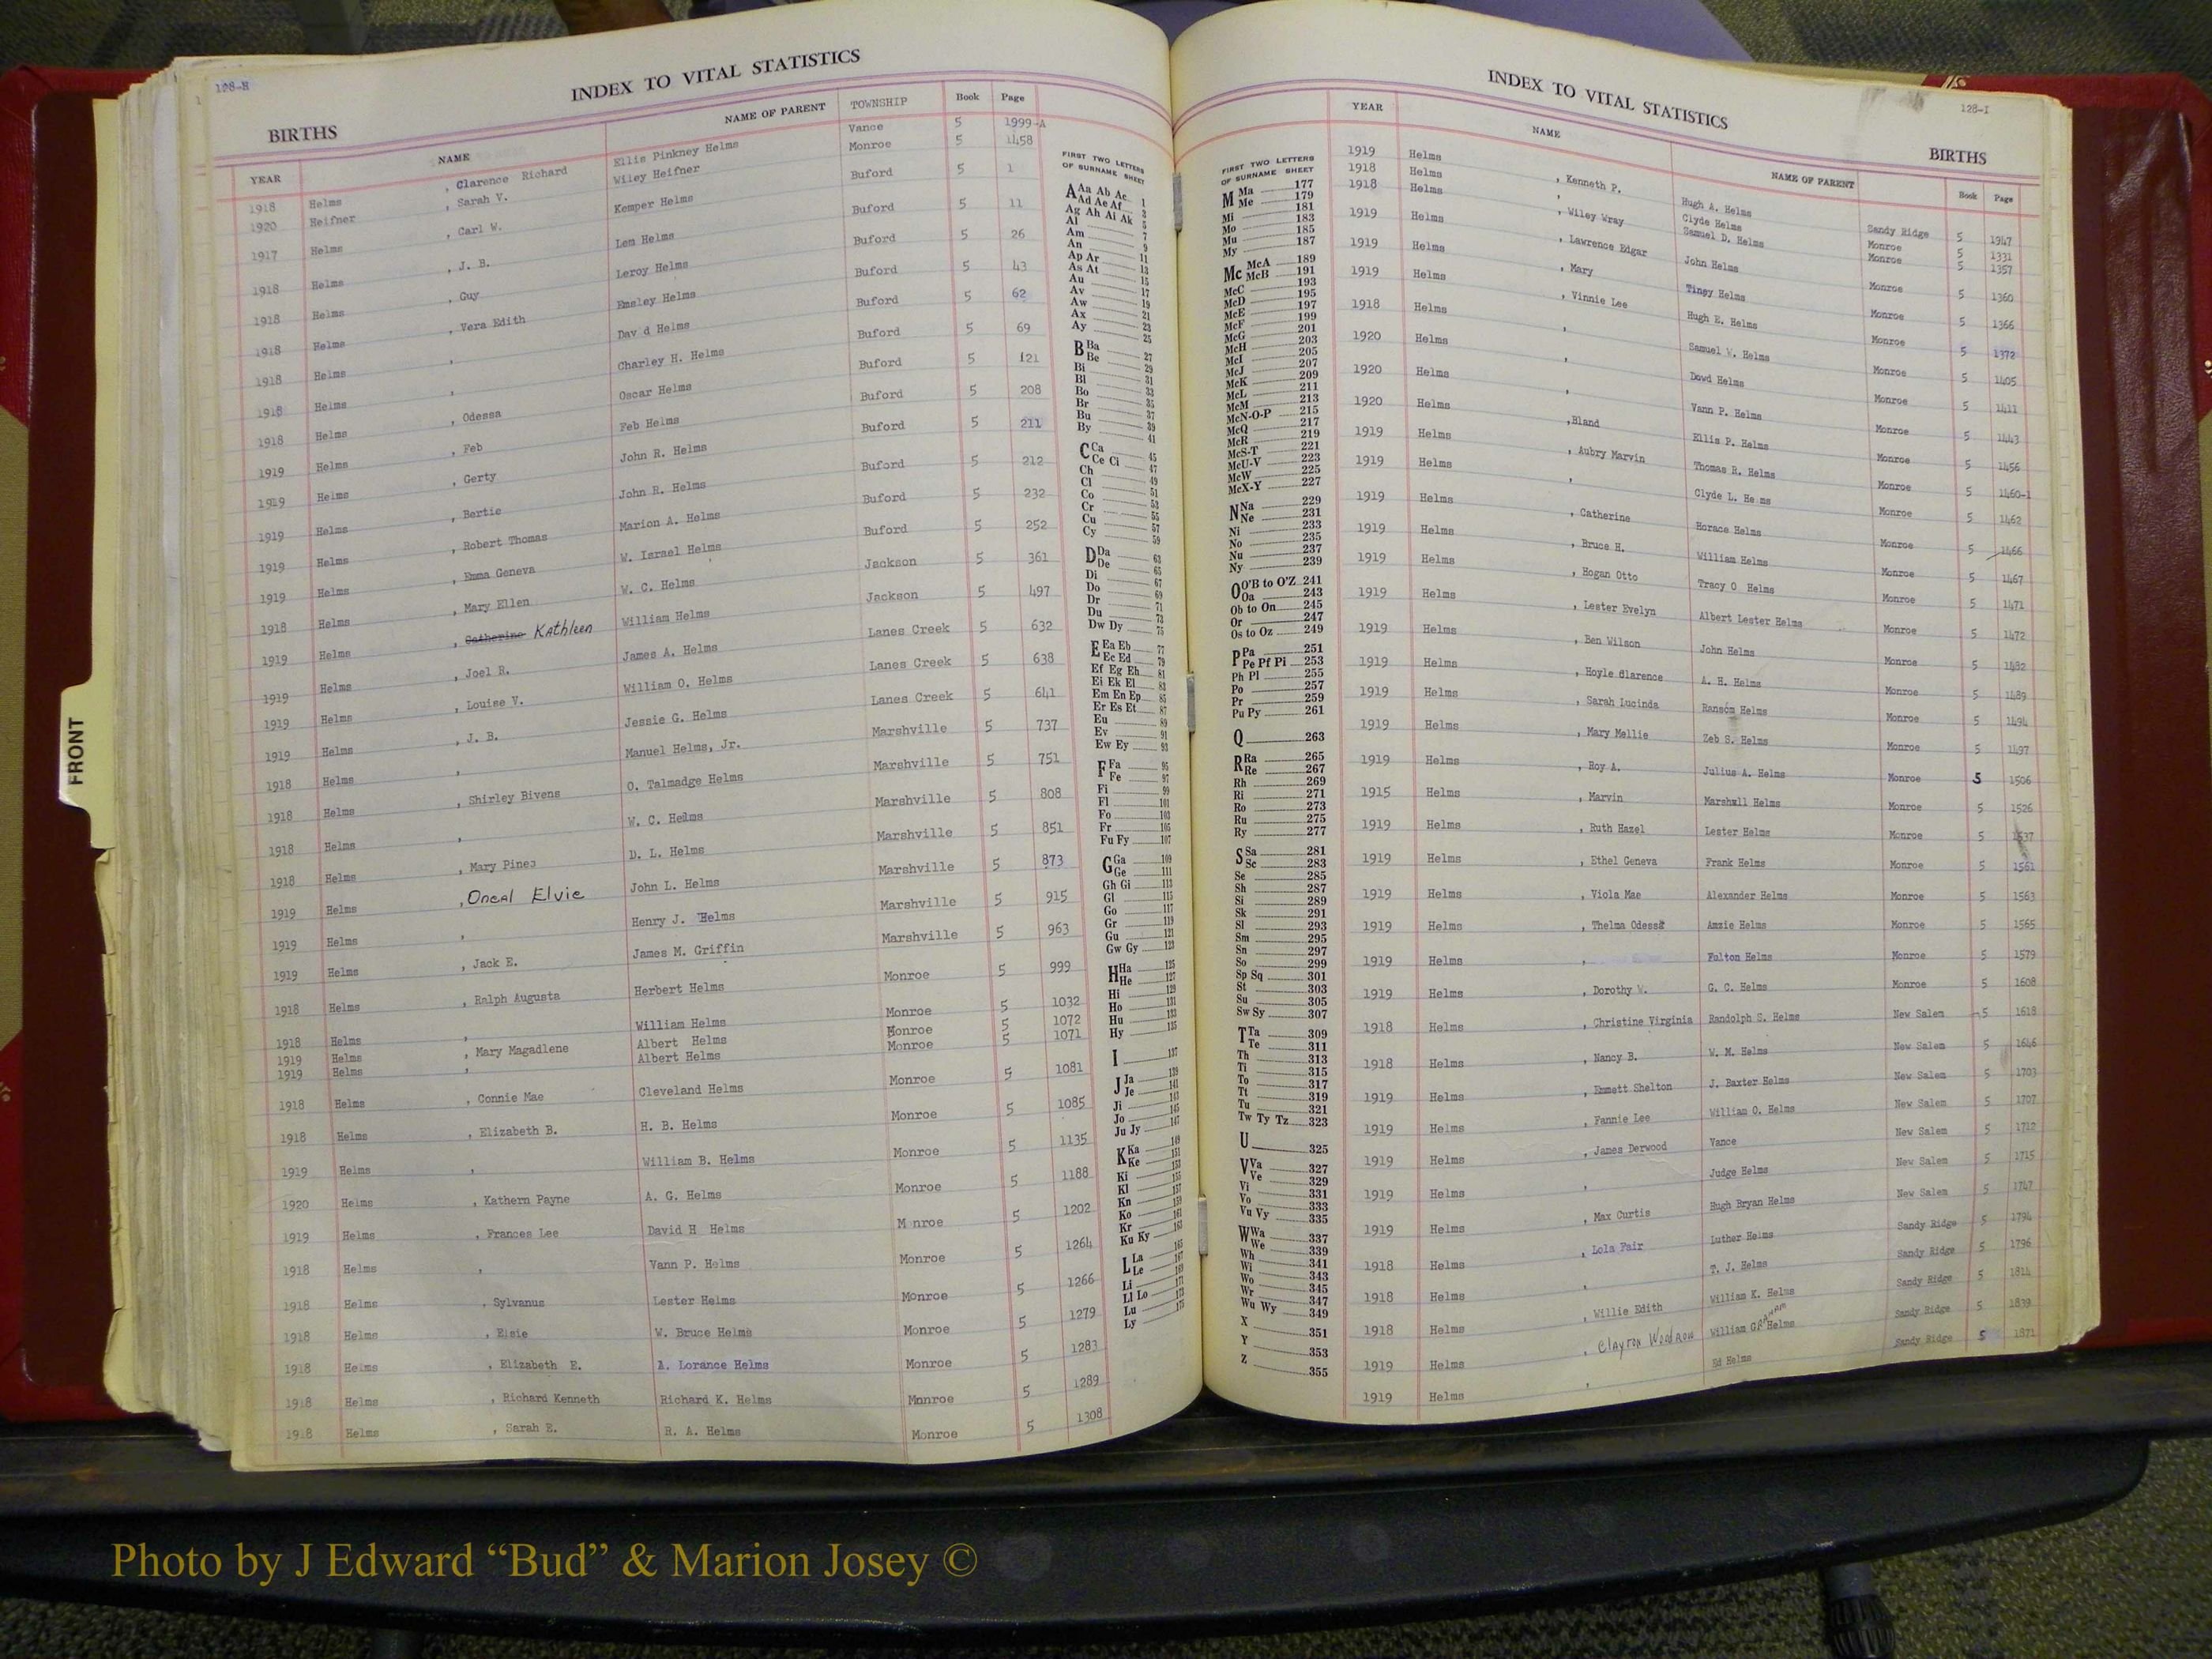 128-H
INDEX TO VITAL STATISTICS
BIRTHS
YEAR NAME NAME OF PARENT TOWNSHIP Book Page
1918 Helms , Clarence Richard Ellis Pinkney Helms Vance 5 1999-A
1920 Heifner , Sarah V. Wiley Heifner Monroe 5 1458
1917 Helms , Carl W. Kemper Helms Buford 5 1
1918 Helms , J. B. Lem Helms Buford 5 11
1918 Helms , Guy Leroy Helms Buford 5 26
1918 Helms , Vera Edith Emsley Helms Buford 5 43
1918 Helms , Dav d Helms Buford 5 62
1918 Helms , Charley H. Helms Buford 5 69
1918 Helms , Odessa Oscar Helms Buford 5 121
1919 Helms , Feb Feb Helms Buford 5 208
1919 Helms , Gerty John R. Helms Buford 5 211
1919 Helms , Bertie John R. Helms Buford 5 212
1919 Helms , Robert Thomas Marion A. Helms Buford 5 232
1919 Helms , Emma Geneva W. Israel Helms Buford 5 252
1918 Helms , Mary Ellen W. C. Helms Jackson 5 361
1919 Helms , Catherine Kathleen William Helms Jackson 5 497
1919 Helms , Joel R. James A. Helms Lanes Creek 5 632
1919 Helms , Louise V. William O. Helms Lanes Creek 5 638
1919 Helms , J. B. Jessie G. Helms Lanes Creek 5 641
1918 Helms , Manuel Helms, Jr. Marshville 5 737
1918 Helms , Shirley Bivens O. Talmadge Helms Marshville 5 751
1918 Helms , W. C. Helms Marshville 5 808
1918 Helms , Mary Pines D. L. Helms Marshville 5 851
1919 Helms , Oneal Elvie John L. Helms Marshville 5 873
1919 Helms , Henry J. Helms Marshville 5 915
1919 Helms , Jack E. James M. Griffin Marshville 5 963
1918 Helms , Ralph Augusta Herbert Helms Monroe 5 999
1918 Helms , William Helms Monroe 5 1032
1919 Helms , Mary Magadlene Albert Helms Monroe 5 1072
1919 Helms , Albert Helms Monroe 5 1071
1918 Helms , Connie Mae Cleveland Helms Monroe 5 1081
1918 Helms , Elizabeth B. H. B. Helms Monroe 5 1085
1919 Helms , William B. Helms Monroe 5 1135
1920 Helms , Kathern Payne A. G. Helms Monroe 5 1188
1919 Helms , Frances Lee David H Helms M nroe 5 1202
1918 Helms , Vann P. Helms Monroe 5 1264
1918 Helms , Sylvanus Lester Helms Monroe 5 1266
1918 Helms , Elsie W. Bruce Helms Monroe 5 1279
1918 Helms , Elizabeth E. A. Lorance Helms Monroe 5 1283
1918 Helms , Richard Kenneth Richard K. Helms Monroe 5 1289
1918 Helms , Sarah E. R. A. Helms Monroe 5 1308
FIRST TWO LETTERS
OF SURNAME SHEET
A Aa Ab Ac 1
Ad Ae Af 3
Ag Ah Ai Ak 5
Al 7
Am 9
An 11
Ap Ar 13
As At 15
Au 17
Av 19
Aw 21
Ax 23
Ay 25
B Ba 27
Be 29
Bi 31
Bl 33
Bo 35
Br 37
Bu 39
By 41
C Ca 45
Ce Ci 47
Ch 49
Cl 51
Co 53
Cr 55
Cu 57
Cy 59
D Da 63
De 65
Di 67
Do 69
Dr 71
Du 73
Dw Dy 75
E Ea Eb 77
Ec Ed 79
Ef Eg Eh 81
Ei Ek El 83
Em En Ep 85
Er Es Et 87
Eu 89
Ev 91
Ew Ey 93
F Fa 95
Fe 97
Fi 99
Fl 101
Fo 103
Fr 105
Fu Fy 107
G Ga 109
Ge 111
Gh Gi 113
Gl 115
Go 117
Gr 119
Gu 121
Gw Gy 123
H Ha 125
He 127
Hi 129
Ho 131
Hu 133
Hy 135
I 137
J Ja 139
Je 141
Ji 143
Jo 145
Ju Jy 147
K Ka 149
Ke 151
Ki 153
Kl 155
Kn 157
Ko 159
Kr 161
Ku Ky 163
L La 165
Le 167
Li 169
Ll Lo 171
Lu 173
Ly 175
128-I
INDEX TO VITAL STATISTICS
BIRTHS
FIRST TWO LETTERS
OF SURNAME SHEET
M Ma 177
Me 179
Mi 181
Mo 183
Mu 185
My 187
Mc McA 189
McB 191
McC 193
McD 195
McE 197
McF 199
McG 201
McH 203
McI 205
McJ 207
McK 209
McL 211
McM 213
McN-O-P 215
McQ 217
McR 219
McS-T 221
McU-V 223
McW 225
McX-Y 227
N Na 229
Ne 231
Ni 233
No 235
Nu 237
Ny 239
O O'B to O'Z 241
Oa 243
Ob to On 245
Or 247
Os to Oz 249
P Pa 251
Pe Pf Pi 253
Ph Pl 255
Po 257
Pr 259
Pu Py 261
Q 263
R Ra 265
Re 267
Rh 269
Ri 271
Ro 273
Ru 275
Ry 277
S Sa 281
Sc 283
Se 285
Sh 287
Si 289
Sk 291
Sl 293
Sm 295
Sn 297
So 299
Sp Sq 301
St 303
Su 305
Sw Sy 307
T Ta 309
Te 311
Th 313
Ti 315
To 317
Tt 319
Tu 321
Tw Ty Tz 323
U 325
V Va 327
Ve 329
Vi 331
Vo 333
Vu Vy 335
W Wa 337
We 339
Wh 341
Wi 343
Wo 345
Wr 347
Wu Wy 349
X 351
Y 353
Z 355
YEAR NAME NAME OF PARENT Book Page
1919 Helms , Kenneth P. Hugh A. Helms Sandy Ridge 5 1947
1918 Helms , Clyde Helms Monroe 5 1331
1918 Helms , Wiley Wray Samuel D. Helms Monroe 5 1357
1919 Helms , Lawrence Edgar John Helms Monroe 5 1360
1919 Helms , Mary Helms Monroe 5 1366
1919 Helms , Vinnie Lee Hugh E. Helms Monroe 5 1372
1918 Helms , Samuel W. Helms Monroe 5 1405
1920 Helms , Dowd Helms Monroe 5 1411
1920 Helms , Vann P. Helms Monroe 5 1443
1920 Helms ,Bland Ellis P. Helms Monroe 5 1456
1919 Helms , Aubry Marvin Thomas R. Helms Monroe 5 1460-1
1919 Helms , Clyde L. He ms Monroe 5 1462
1919 Helms , Catherine Horace Helms Monroe 5 1466
1919 Helms , Bruce H. William Helms Monroe 5 1467
1919 Helms , Hogan Otto Tracy O Helms Monroe 5 1471
1919 Helms , Lester Evelyn Albert Lester Helms Monroe 5 1472
1919 Helms , Ben Wilson John Helms Monroe 5 1482
1919 Helms , Hoyle Clarence A. H. Helms Monroe 5 1489
1919 Helms , Sarah Lucinda Ransom Helms Monroe 5 1494
1919 Helms , Mary Mellie Zeb S. Helms Monroe 5 1497
1919 Helms , Roy A. Julius A. Helms Monroe 5 1506
1915 Helms , Marvin Marshall Helms Monroe 5 1526
1919 Helms , Ruth Hazel Lester Helms Monroe 5 1537
1919 Helms , Ethel Geneva Frank Helms Monroe 5 1561
1919 Helms , Viola Mae Alexander Helms Monroe 5 1563
1919 Helms , Thelma Odessa Amzie Helms Monroe 5 1565
1919 Helms , Fulton Helms Monroe 5 1579
1919 Helms , Dorothy W. G. C. Helms Monroe 5 1608
1918 Helms , Christine Virginia Randolph S. Helms New Salem 5 1618
1918 Helms , Nancy B. W. M. Helms New Salem 5 1646
1919 Helms , Emmett Shelton J. Baxter Helms New Salem 5 1703
1919 Helms , Fannie Lee William O. Helms New Salem 5 1707
1919 Helms , James Derwood Vance New Salem 5 1712
1919 Helms , Judge Helms New Salem 5 1715
1919 Helms , Max Curtis Hugh Bryan Helms New Salem 5 1747
1918 Helms , Lola Fair Luther Helms Sandy Ridge 5 1794
1918 Helms , T. J. Helms Sandy Ridge 5 1796
1918 Helms , Willie Edith William K. Helms Sandy Ridge 5 1814
1919 Helms , Clayton Woodrow William Graham Helms Sandy Ridge 5 1839
1919 Helms , Ed Helms Sandy Ridge 5 1871
FRONT
Photo by J Edward “Bud” & Marion Josey ©